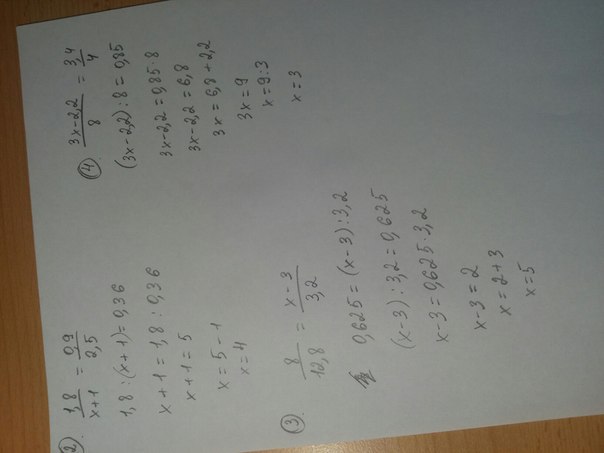 2) 1,8/x+1 = 0,9/2,5
1,8 : (x+1) = 0,36
x+1 = 1,8 : 0,36
x+1 = 5
x = 5 - 1
x = 4
3) 8/12,8 = x-3/3,2
0,625 = (x-3) : 3,2
(x-3) : 3,2 = 0,625
x-3 = 0,625 · 3,2
x-3 = 2
x = 2+3
x = 5
4) 3x-2,2/8 = 3,4/4
(3x-2,2) : 8 = 0,85
3x-2,2 = 0,85 · 8
3x-2,2 = 6,8
3x = 6,8 + 2,2
3x = 9
x = 9 : 3
x = 3